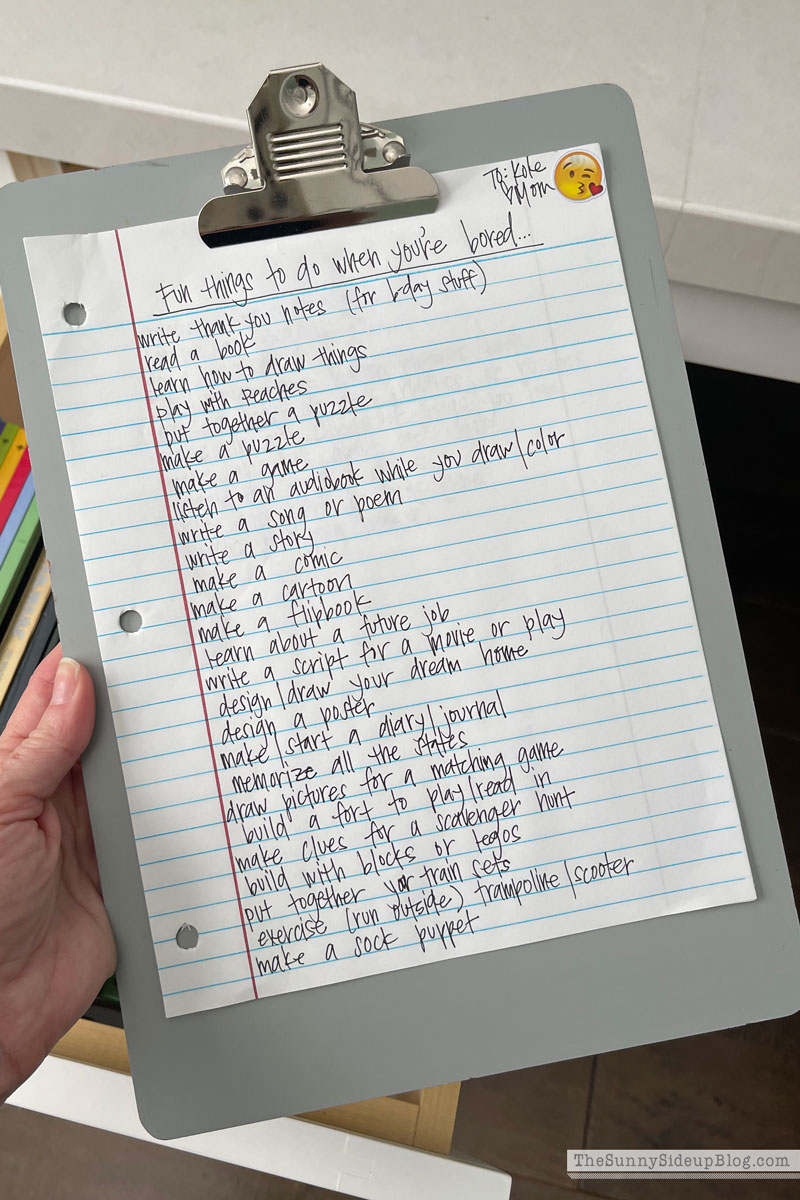 To: Kole
♡ Mom
Fun things to do when you're bored...
write thank you notes (for b-day stuff)
read a book
learn how to draw things
play with Peaches
put together a puzzle
make a puzzle
make a game
listen to an audiobook while you draw/color
write a song or poem
write a story
make a comic
make a cartoon
make a flipbook
learn about a future job
write a script for a movie or play
design/draw your dream home
design a poster
make/start a diary/journal
memorize all the states
draw pictures for a matching game
build a fort to play/read in
make clues for a scavenger hunt
build with blocks or legos
put together your train sets
exercise (run outside) trampoline/scooter
make a sock puppet
TheSunnySideupBlog.com